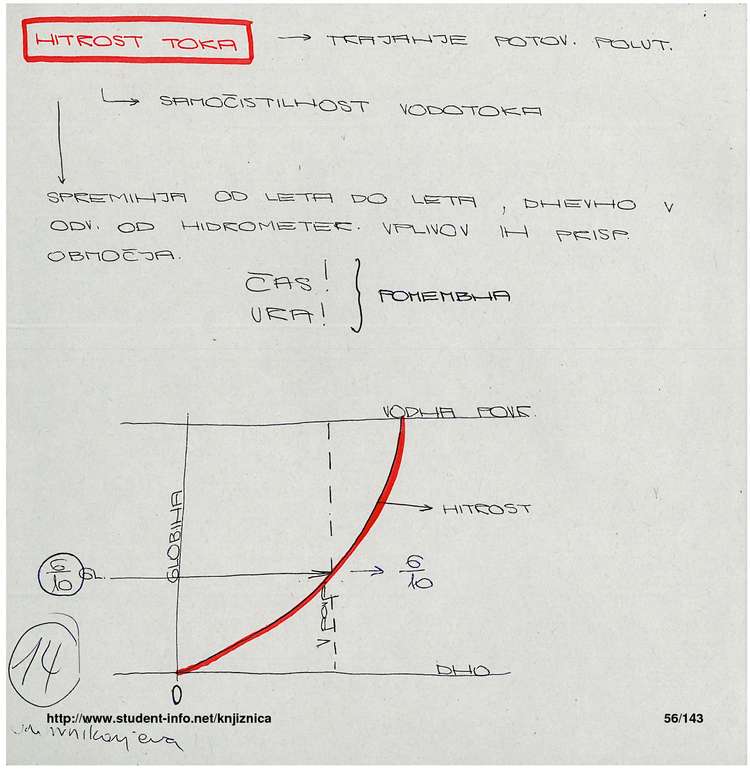 HITROST TOKA → TRAJANJE POTOV. POLUT.
↳ SAMOČISTILNOST VODOTOKA
SPREMINJA OD LETA DO LETA, DNEVNO V
ODV. OD HIDROMETER. VPLIVOV IN PRISP.
OBMOČJA.
ČAS!
URA! } POMEMBNA
VODNA POVR.
GLOBINA
HITROST
6/10 GL. → 6/10
V POVR
DNO
0
14
http://www.student-info.net/knjiznica 56/143